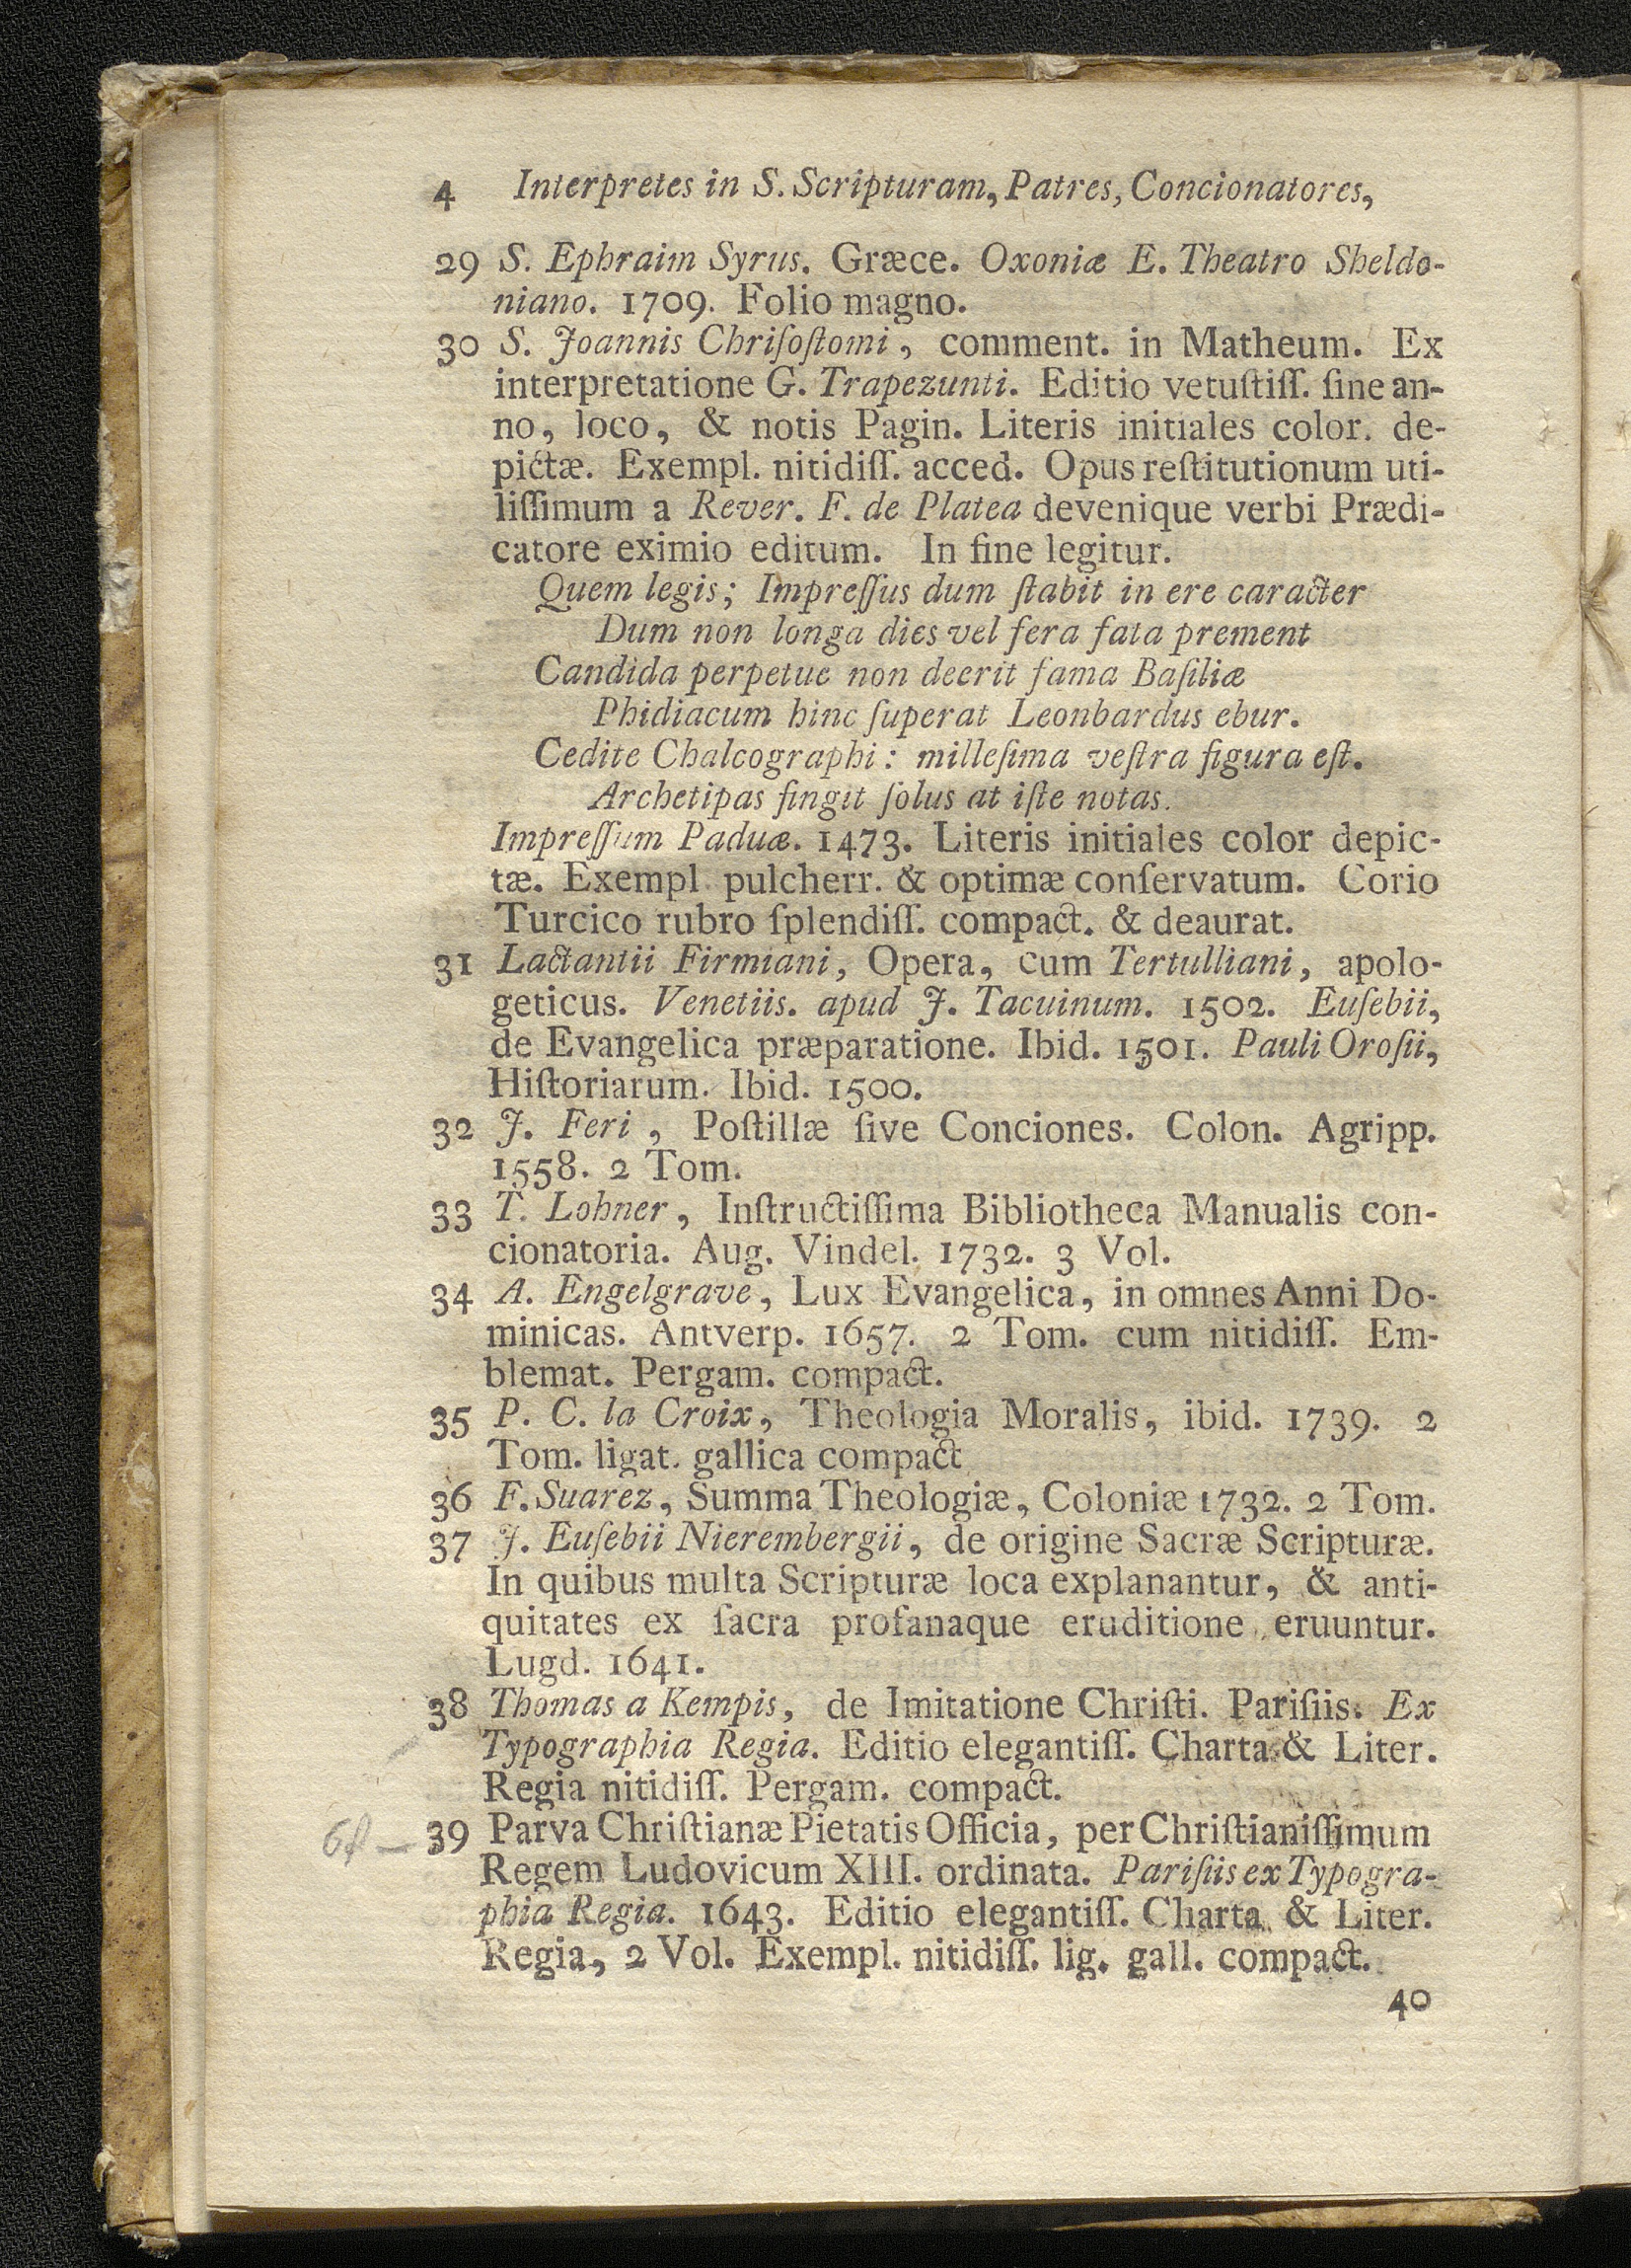 4 Interpretes in S. Scripturam, Patres, Concionatores,
29 S. Ephraim Syrus. Græce. Oxoniæ E. Theatro Sheldo-
niano. 1709. Folio magno.
30 S. Joannis Chriſoſtomi, comment. in Matheum. Ex
interpretatione G. Trapezunti. Editio vetuſtiſſ. ſine an-
no, loco, & notis Pagin. Literis initiales color. de-
pictæ. Exempl. nitidiſſ. acced. Opus reſtitutionum uti-
liſſimum a Rever. F. de Platea devenique verbi Prædi-
catore eximio editum. In fine legitur.
Quem legis; Impreſſus dum ſtabit in ere caracter
Dum non longa dies vel fera fata prement
Candida perpetue non deerit fama Baſiliæ
Phidiacum hinc ſuperat Leonbardus ebur.
Cedite Chalcographi: milleſima veſtra figura eſt.
Archetipas fingit ſolus at iſte notas.
Impreſſum Paduæ. 1473. Literis initiales color depic-
tæ. Exempl. pulcherr. & optimæ conſervatum. Corio
Turcico rubro ſplendiſſ. compact. & deaurat.
31 Lactantii Firmiani, Opera, cum Tertulliani, apolo-
geticus. Venetiis. apud J. Tacuinum. 1502. Euſebii,
de Evangelica præparatione. Ibid. 1501. Pauli Oroſii,
Hiſtoriarum. Ibid. 1500.
32 J. Feri, Poſtillæ ſive Conciones. Colon. Agripp.
1558. 2 Tom.
33 T. Lohner, Inſtructiſſima Bibliotheca Manualis con-
cionatoria. Aug. Vindel. 1732. 3 Vol.
34 A. Engelgrave, Lux Evangelica, in omnes Anni Do-
minicas. Antverp. 1657. 2 Tom. cum nitidiſſ. Em-
blemat. Pergam. compact.
35 P. C. la Croix, Theologia Moralis, ibid. 1739. 2
Tom. ligat. gallica compact
36 F. Suarez, Summa Theologiæ, Coloniæ 1732. 2 Tom.
37 J. Euſebii Nierembergii, de origine Sacræ Scripturæ.
In quibus multa Scripturæ loca explanantur, & anti-
quitates ex ſacra profanaque eruditione eruuntur.
Lugd. 1641.
38 Thomas a Kempis, de Imitatione Chriſti. Pariſiis. Ex
Typographia Regia. Editio elegantiſſ. Charta & Liter.
Regia nitidiſſ. Pergam. compact.
39 Parva Chriſtianæ Pietatis Officia, per Chriſtianiſſimum
Regem Ludovicum XIII. ordinata. Pariſiis ex Typogra-
phia Regia. 1643. Editio elegantiſſ. Charta & Liter.
Regia, 2 Vol. Exempl. nitidiſſ. lig. gall. compact.
40